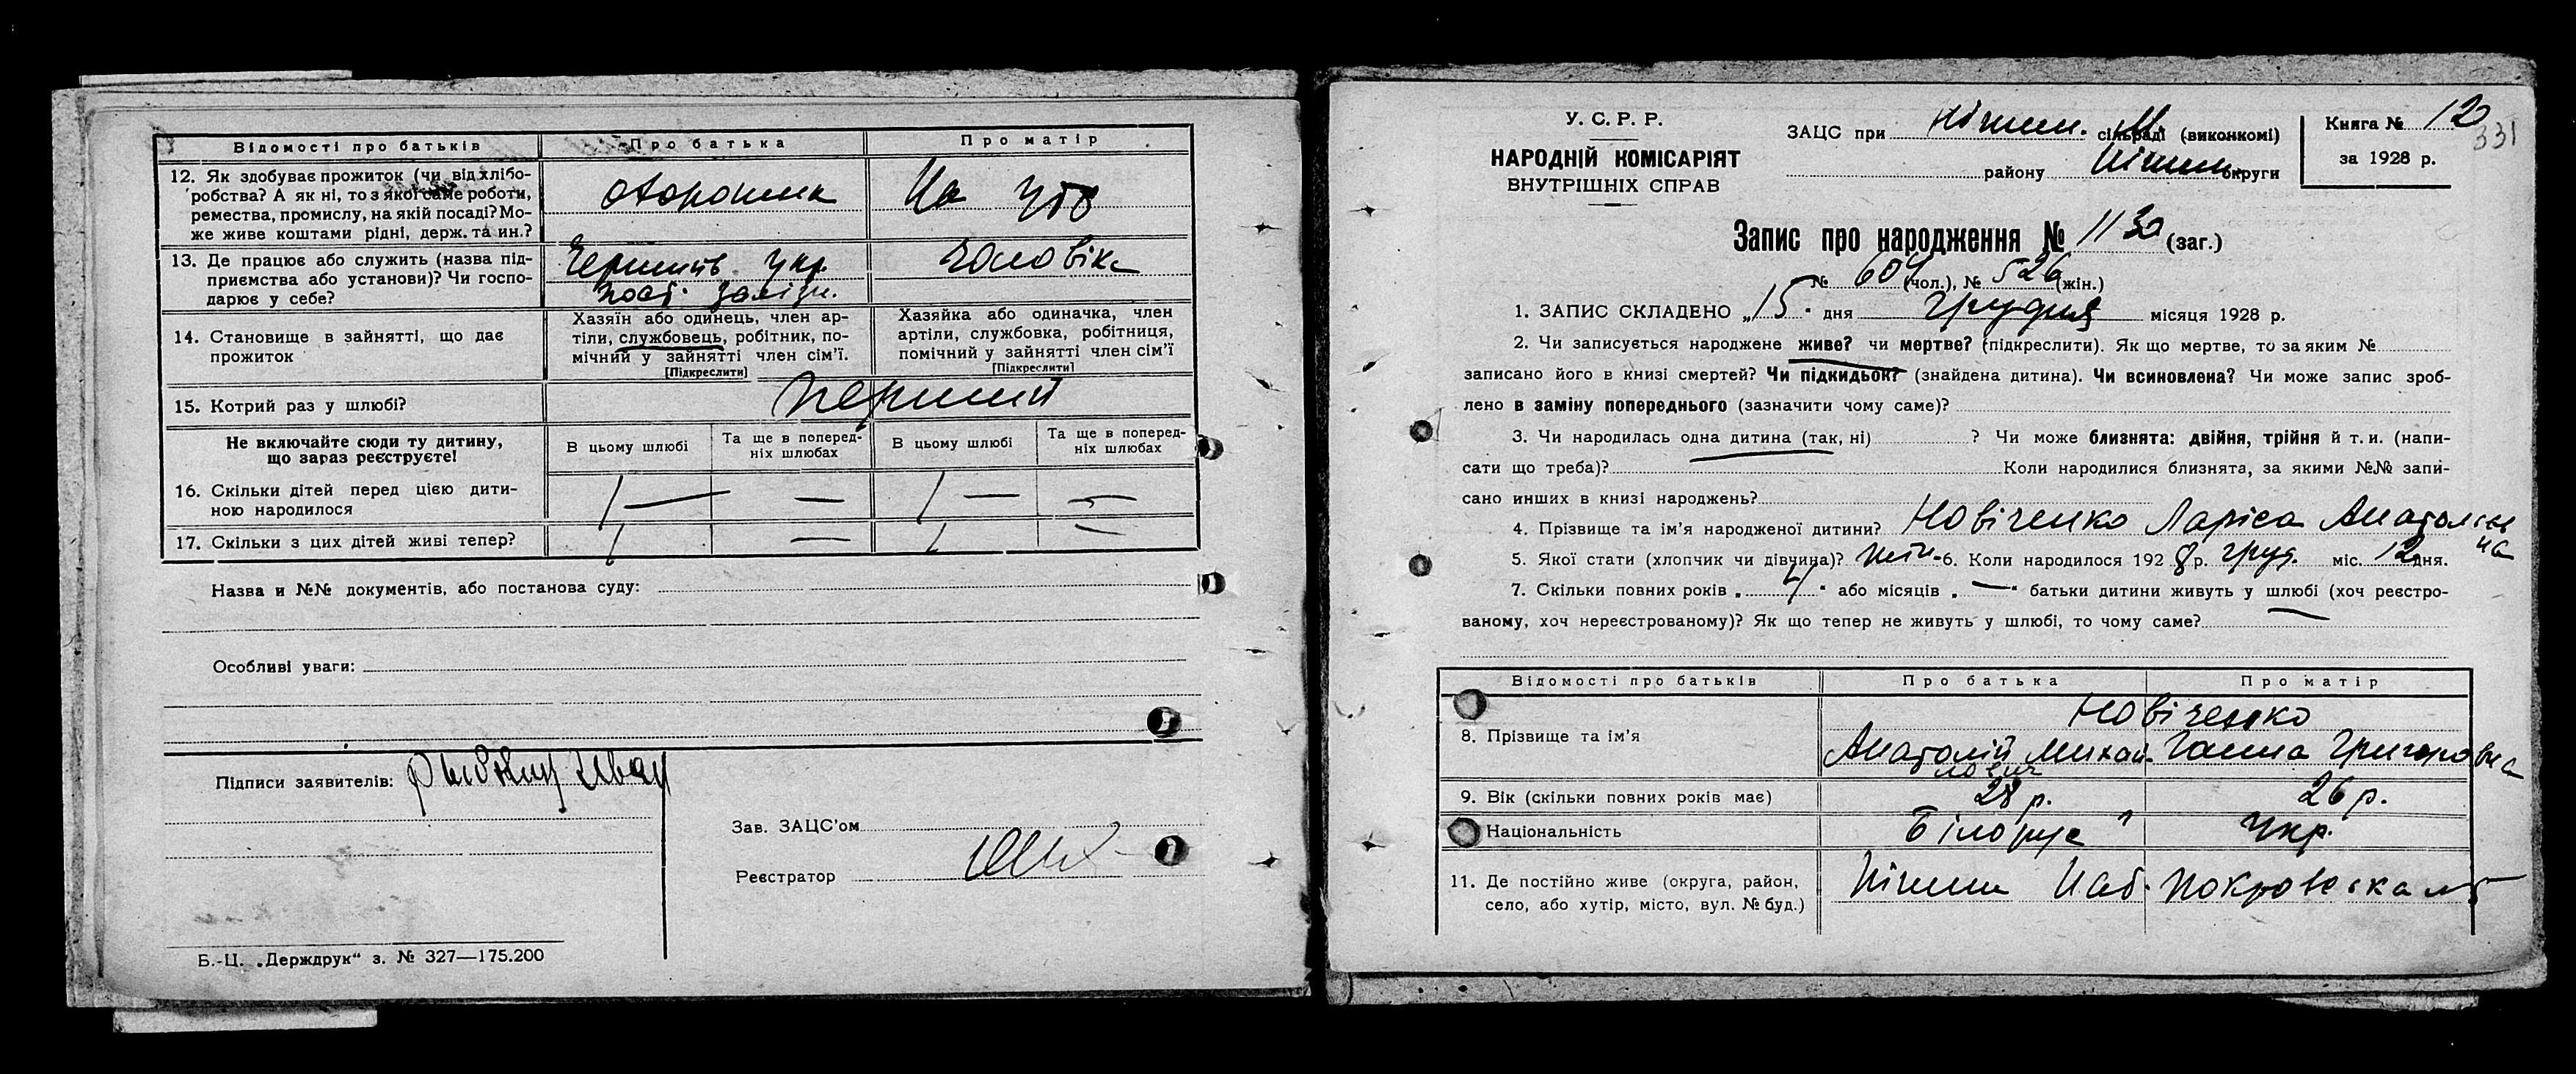 Відомості про батьків Про батька Про матір
12. Як здобуває прожиток (чи від хлібо-
робства? А як ні, то з якої саме роботи,
ремества, промислу, на якій посаді? Мо-
же живе коштами рідні, держ. та ин.?
На утр
13. Де працює або служить (назва під-
приємства або установи)? Чи госпо-
дарює у себе?
укр. чоловіка
14. Становище в зайнятті, що дає
прожиток
Хазяїн або одинець, член ар-
тілі, службовець, робітник, по-
мічний у зайнятті член сім'ї.
[Підкреслити]
Хазяйка або одиначка, член
артіли, службовка, робітниця,
помічний у зайнятті член сім'ї
[Підкреслити]
15. Котрий раз у шлюбі? перший
Не включайте сюди ту дитину,
що зараз реєструєте!
В цьому шлюбі
Та ще в поперед-
ніх шлюбах
В цьому шлюбі
Та ще в поперед-
ніх шлюбах
16. Скільки дітей перед цією дити-
ною народилося
1 — — 1 — —
17. Скільки з цих дітей живі тепер? 1 — 1 —
Назва и №№ документів, або постанова суду:
Особливі уваги:
Підписи заявителів:
Зав. ЗАЦС'ом
Реєстратор
Б.-Ц. „Держдрук“ з. № 327—175.200
У. С. Р. Р.
НАРОДНІЙ КОМІСАРІЯТ
ВНУТРІШНІХ СПРАВ
ЗАЦС при Ніжин. М. сільраді (виконкомі)
району Ніжин. округи
Книга № 12
за 1928 р.
331
Запис про народження № 1130 (заг.)
№ 604 (чол.), № 526 (жін.)
1. ЗАПИС СКЛАДЕНО „15“ дня грудня місяця 1928 р.
2. Чи записується народжене живе? чи мертве? (підкреслити). Як що мертве, то за яким №
записано його в книзі смертей? Чи підкидьок? (знайдена дитина). Чи всиновлена? Чи може запис зроб-
лено в заміну попереднього (зазначити чому саме)?
3. Чи народилась одна дитина (так, ні) ? Чи може близнята: двійня, трійня й т. и. (напи-
сати що треба)? Коли народилися близнята, за якими №№ запи-
сано инших в книзі народжень?
4. Прізвище та ім'я народженої дитини? Новіченко Ларіса Анатоліїв
на
5. Якої стати (хлопчик чи дівчина)? жін. 6. Коли народилося 1928 р. груд. міс. 12 дня.
7. Скільки повних років „4“ або місяців „—“ батьки дитини живуть у шлюбі (хоч реєстро-
ваному, хоч нереєстрованому)? Як що тепер не живуть у шлюбі, то чому саме?
Відомості про батьків Про батька Про матір
Новіченко
8. Прізвище та ім'я Анатолій Михай- Ганна Григоровна
лович
9. Вік (скільки повних років має) 28 р. 26 р.
Національність Білорус укр.
11. Де постійно живе (округа, район,
село, або хутір, місто, вул. № буд.)
Ніжин Наб. Покровська